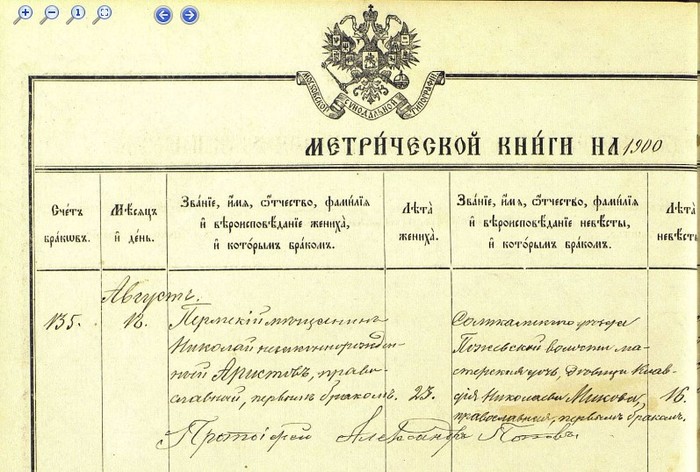 МОСКОВСКОЙ СУНОДАЛЬНОЙ ТИПОГРАФІИ
МЕТРИ́ЧЕСКОЙ КНИ́ГИ НА 1900
Сче́тъ
бра́кѡвъ.
Мѣ́сяцъ
и҆ де́нь.
Зва́нїе, и҆́мѧ, ѻ҆́тчество, фамилїѧ
и҆ вѣроисповѣ́данїе жениха̀,
и҆ кото́рымъ бра́комъ.
Лѣ́та
жениха̀.
Зва́нїе, и҆́мѧ, ѻ҆́тчество, фамилїѧ
и҆ вѣроисповѣ́данїе невѣ́сты,
и҆ кото́рымъ бра́комъ.
Лѣ́та
невѣ́ст
Августъ.
135.
Пермскій мѣщанинъ
Николай незаконнорожден-
ный Аристовъ, право-
славный, первымъ бракомъ.
23.
Соликамскаго уѣзда
Пожевской волости ма-
стерская дочь, дѣвица Клав-
дія Николаева Микова,
православная, первымъ бракомъ.
16.
Протоіерей Александръ Поповъ